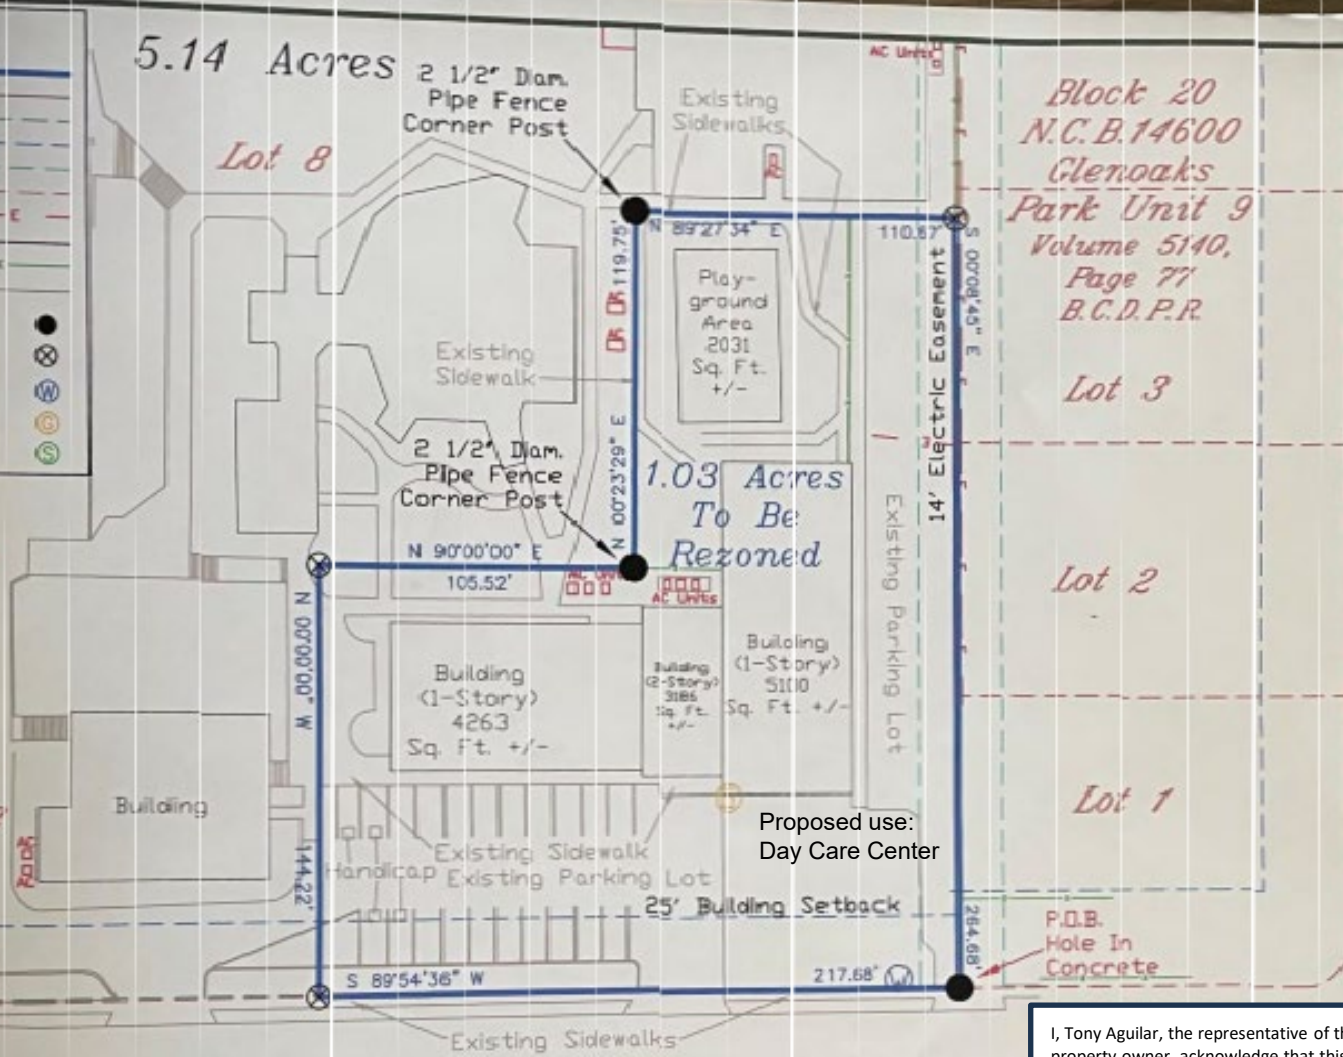 5.14 Acres
2 1/2" Diam.
Pipe Fence
Corner Post
Existing
Sidewalks
AC Units
Block 20
N.C.B.14600
Glenoaks
Park Unit 9
Volume 5140,
Page 77
B.C.D.P.R.
Lot 8
AC
E
N 89°27'34" E
110.67'
S 00°08'45" E
119.75'
Play-
ground
Area
2031
Sq. Ft.
+/-
14' Electric Easement
Existing
Sidewalk
Lot 3
W
G
S
2 1/2" Diam.
Pipe Fence
Corner Post
N 00°23'29" E
1.03 Acres
To Be
Rezoned
Existing Parking Lot
N 90°00'00" E
105.52'
AC Units
AC Units
Lot 2
N 00°00'00" W
Building
(1-Story)
4263
Sq. Ft. +/-
Building
(2-Story)
3186
Sq. Ft.
+/-
Building
(1-Story)
5100
Sq. Ft. +/-
Building
Lot 1
Proposed use:
Day Care Center
Existing Sidewalk
Handicap Existing Parking Lot
144.22'
25' Building Setback
264.68'
P.O.B.
Hole In
Concrete
S 89°54'36" W
217.68'
W
Existing Sidewalks
I, Tony Aguilar, the representative of
property owner, acknowledge that